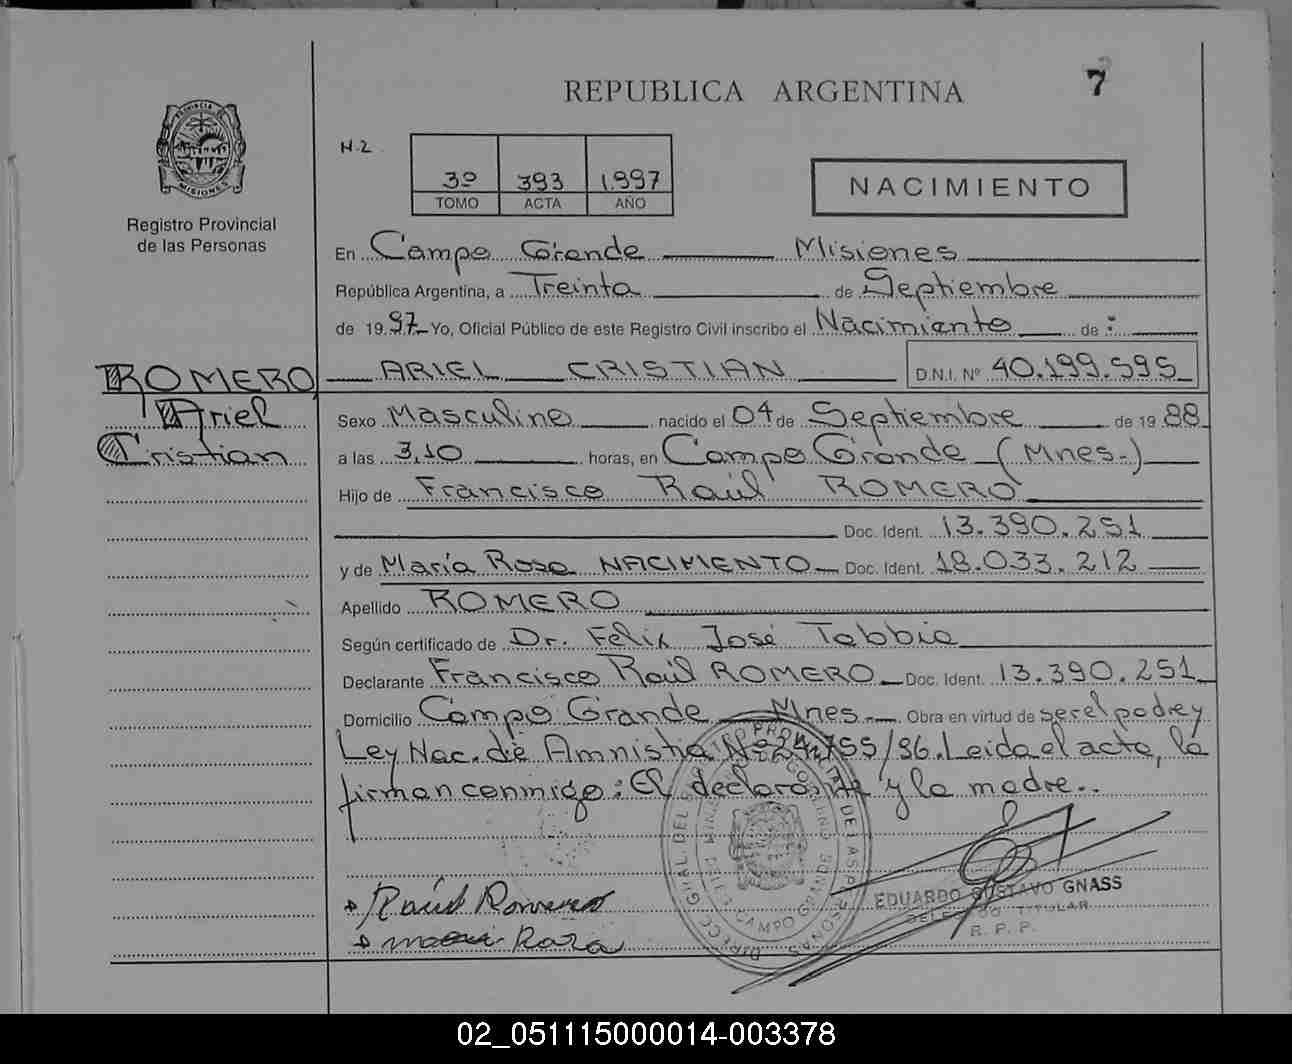 7
REPUBLICA ARGENTINA
PROVINCIA
MISIONES
Registro Provincial
de las Personas
N.2
3º 393 1.997
TOMO ACTA AÑO
NACIMIENTO
En Campo Grande Misiones
República Argentina, a Treinta de Septiembre
de 19 97 Yo, Oficial Público de este Registro Civil inscribo el Nacimiento de :
ROMERO ARIEL CRISTIAN D.N.I. Nº 40.199.595
Ariel
Cristian
Sexo Masculino nacido el 04 de Septiembre de 19 88
a las 3,10 horas, en Campo Grande (Mnes.)
Hijo de Francisco Raúl ROMERO
Doc. Ident. 13.390.251
y de María Rosa NACIMIENTO Doc. Ident. 18.033.212
Apellido ROMERO
Según certificado de Dr. Felix José Tabbia
Declarante Francisco Raúl ROMERO Doc. Ident. 13.390.251
Domicilio Campo Grande Mnes. Obra en virtud de ser el padre y
Ley Nac. de Amnistia Nº 24.755/96. Leida el acta, la
firman conmigo: El declarante y la madre..
Raúl Romero
Rosa
EDUARDO GUSTAVO GNASS
DELEGADO TITULAR
R. P. P.
CAMPO GRANDE
02_051115000014-003378